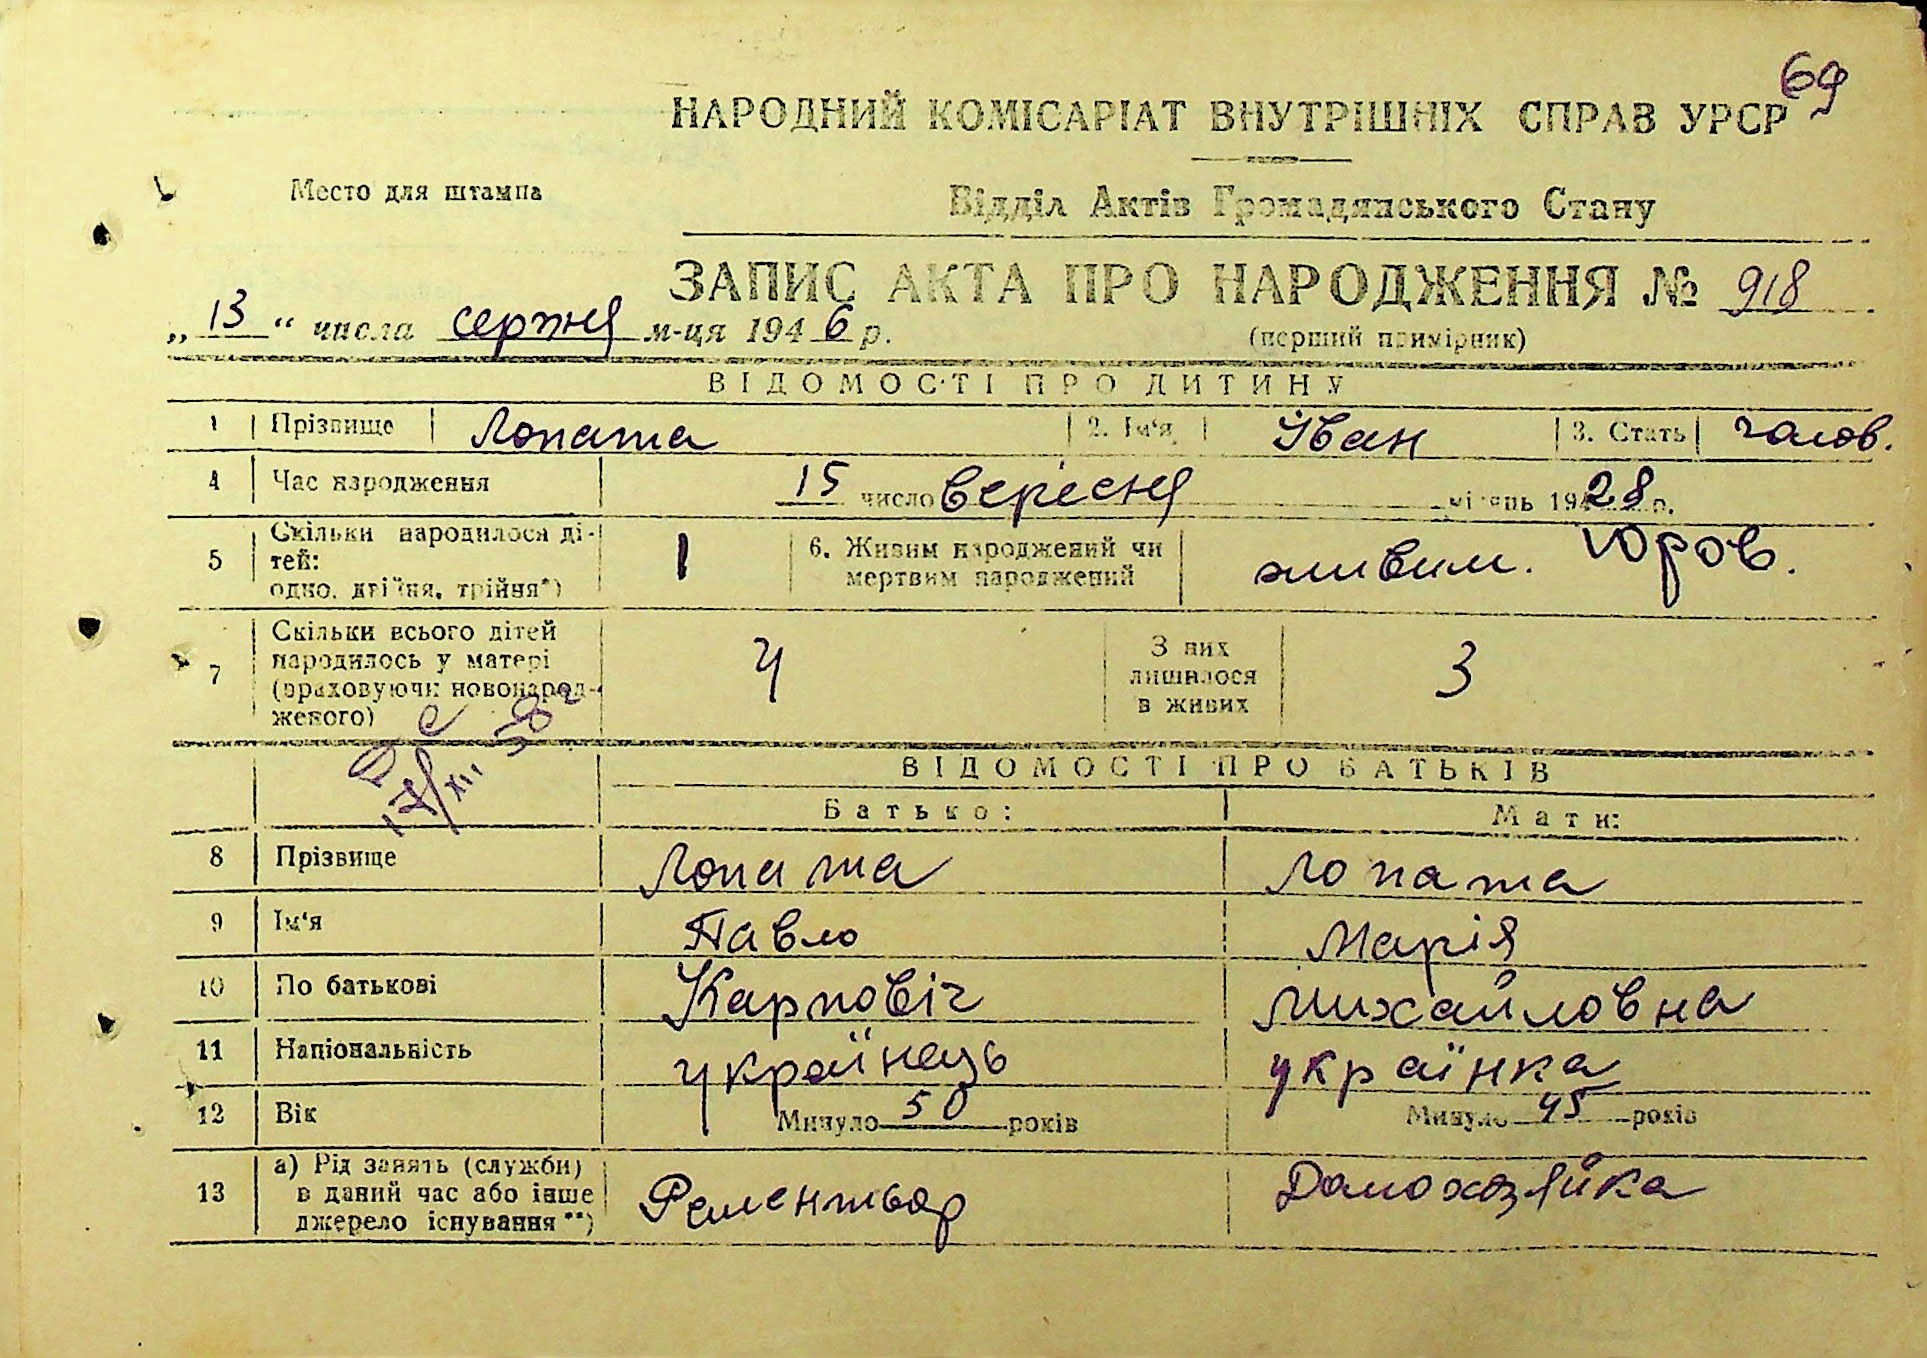 69
НАРОДНИЙ КОМІСАРІАТ ВНУТРІШНІХ СПРАВ УРСР
Место для штампа
Відділ Актів Громадянського Стану
ЗАПИС АКТА ПРО НАРОДЖЕННЯ № 918
„ 13 “ числа серпня м-ця 1946 р.
(перший примірник)
ВІДОМОСТІ ПРО ДИТИНУ
1 Прізвище Лопата 2. Ім'я Іван 3. Стать чолов.
4 Час народження 15 число вересня місяць 1928 р.
5 Скільки народилося дітей: одно, двійня, трійня*) 1 6. Живим народжений чи мертвим народжений живим. Юров.
7 Скільки всього дітей народилось у матері (враховуючи новонародженого) 4 З них лишилося в живих 3
17/XII
ВІДОМОСТІ ПРО БАТЬКІВ
Батько: Мати:
8 Прізвище Лопата Лопата
9 Ім'я Павло Марія
10 По батькові Карповіч Михайловна
11 Національність українець українка
12 Вік Минуло 50 років Минуло 45 років
13 а) Рід занять (служби) в даний час або інше джерело існування **) Домохозяйка